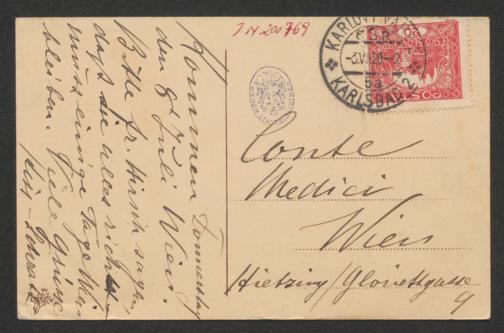 J N 200769
KARLOVY VARY
ČSR
-3.VII.20-2
KARLSBAD 2
Kommen Donnerstag
den 8t Juli Wien.
Bitte Fr. Hirsch sagen,
daß sie alles richtet
muß einige Tage Wien
bleiben. Viele Grüsse
Conte
Medici
Wien
Hietzing/Gloriettgasse
9